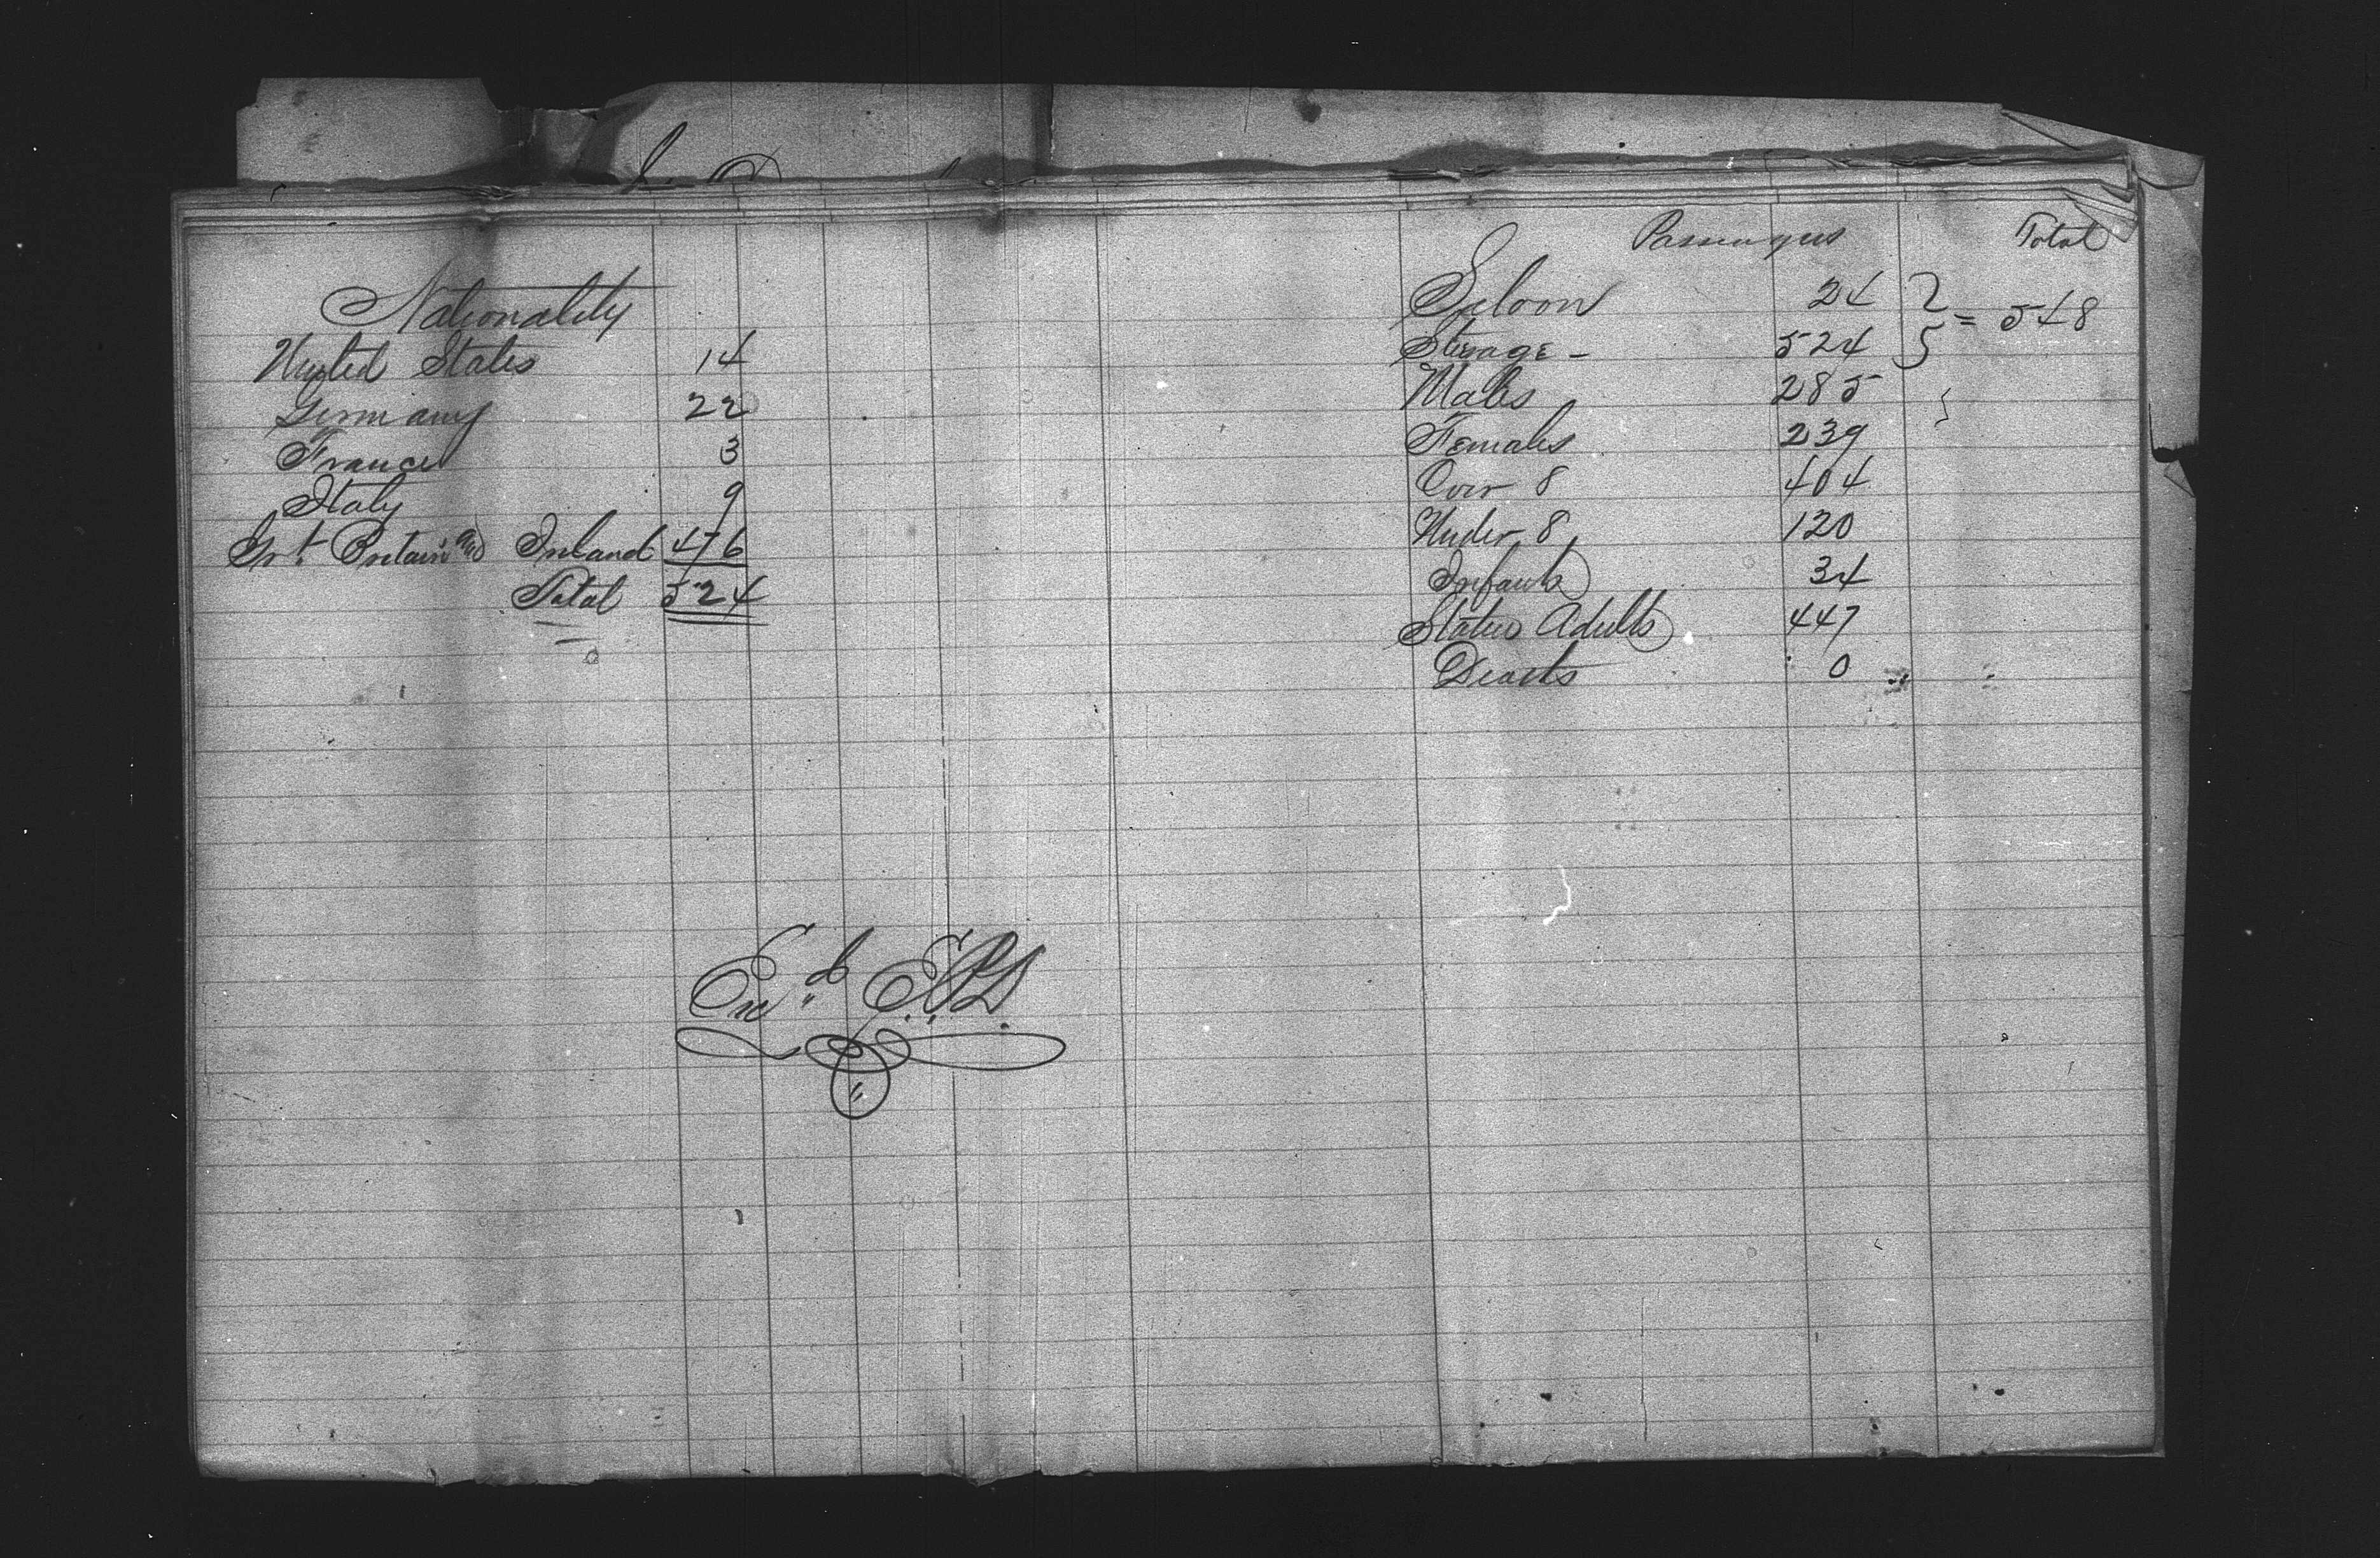 Nationality
United States 14
Germany 22
France 3
Italy 9
Grt Britain and Ireland 476
Total 524
Passengers Total
Saloon 24
Sterage - 524 } = 548
Males 285
Females 239
Over 8 404
Under 8 120
Infants 34
Statue Adults 447
Deaths 0
Exd